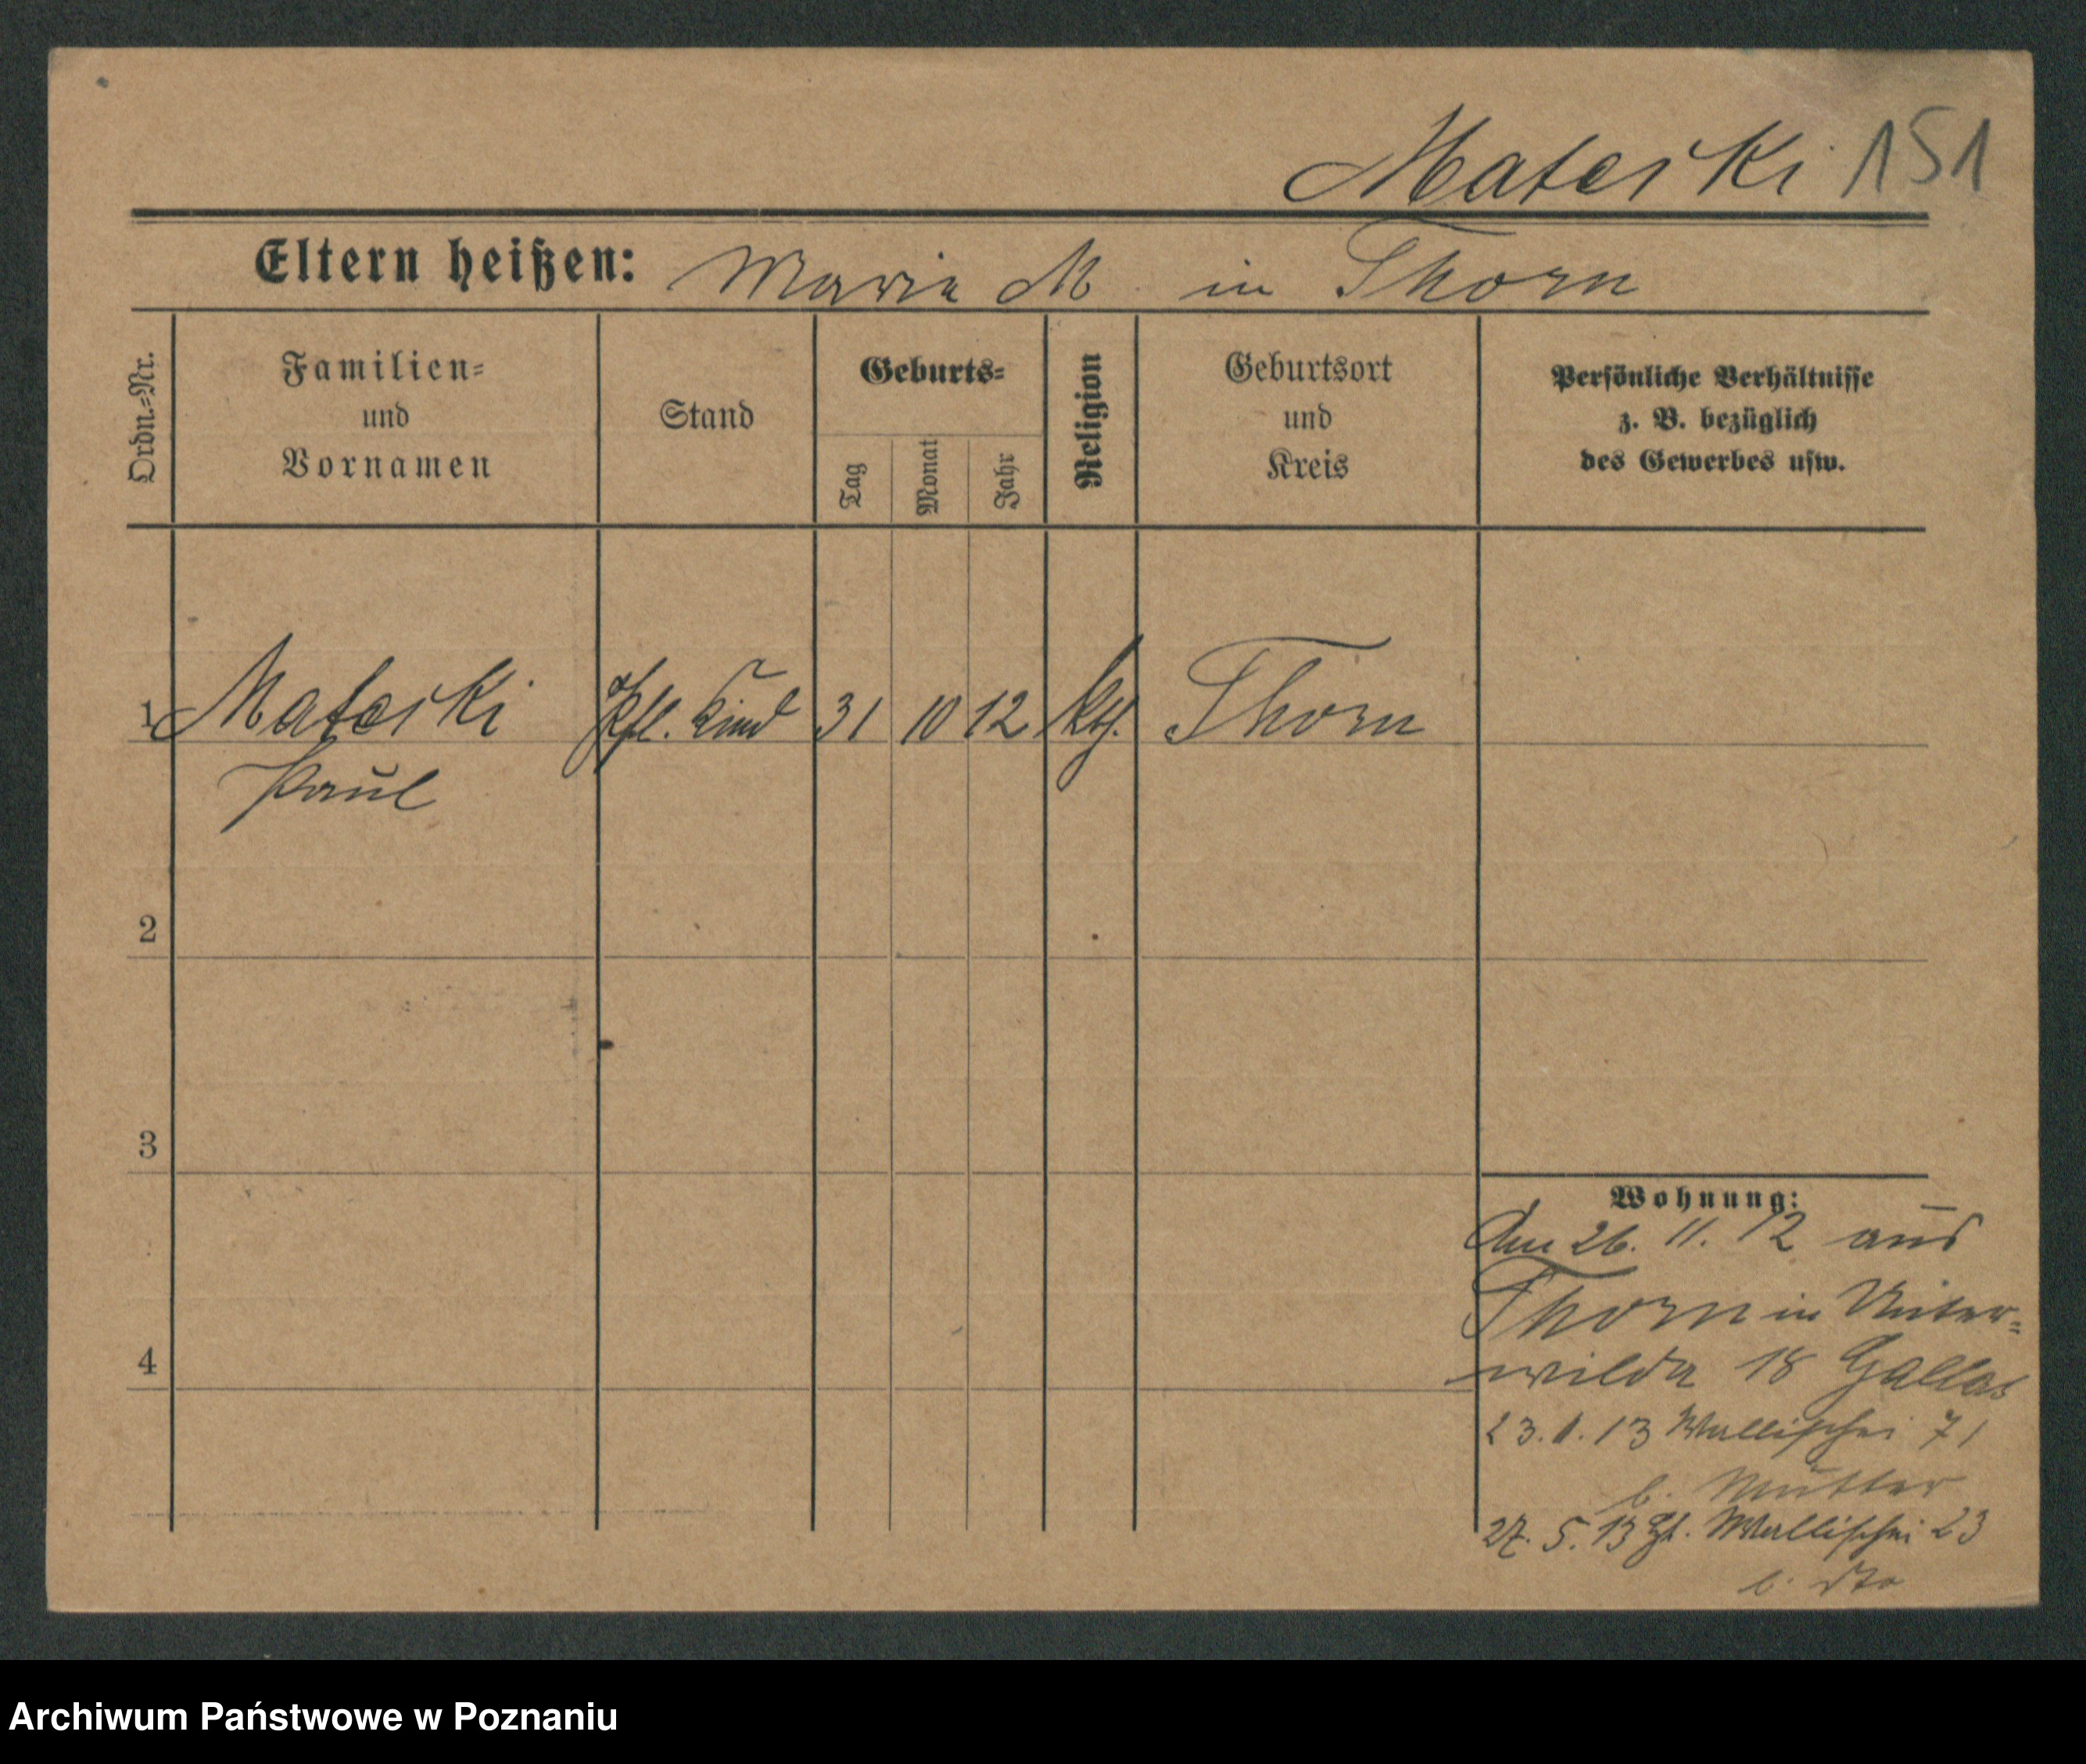 Mateski 151
Eltern heißen: Marie M. in Thorn
Ordn.-Nr.
Familien-
und
Vornamen
Stand
Geburts-
Tag
Monat
Jahr
Religion
Geburtsort
und
Kreis
Persönliche Verhältnisse
z. B. bezüglich
des Gewerbes usw.
1 Mateski Pfl. Kind 31 10 12 kth. Thorn
Paul
2
3
4
Wohnung:
Am 26. 11. 12 aus
Thorn in Unter-
wilda 18 Gallas
23. 1. 13 Wallischei 71
b. Mutter
27. 5. 13 Wallischei 23
b. dto
Archiwum Państwowe w Poznaniu